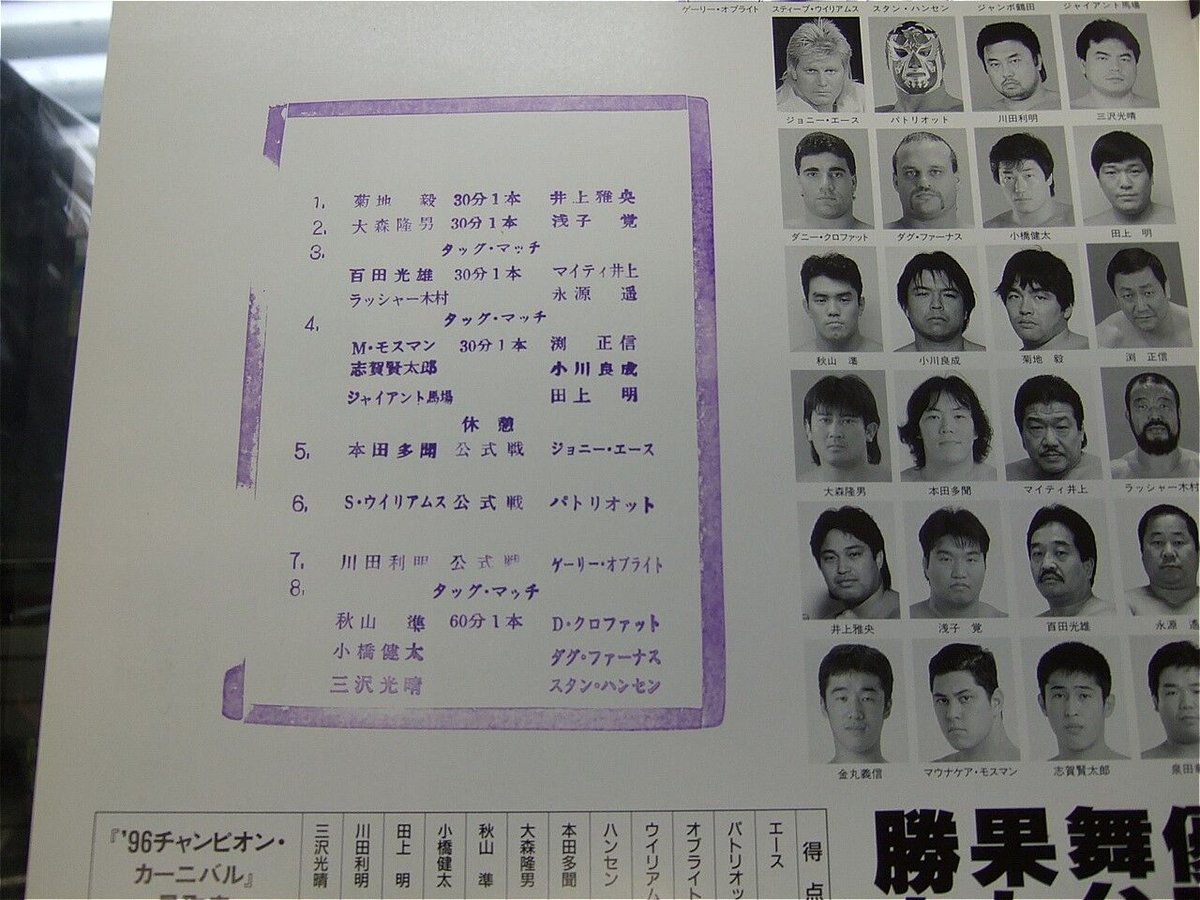 1. 菊地 毅 30分1本 井上雅央
2. 大森隆男 30分1本 浅子 覚
3. タッグ・マッチ
百田光雄 30分1本 マイティ井上
ラッシャー木村 永源 遥
4. タッグ・マッチ
M・モスマン 30分1本 渕 正信
志賀賢太郎 小川良成
ジャイアント馬場 田上 明
休憩
5. 本田多聞 公式戦 ジョニー・エース
6. S・ウイリアムス 公式戦 パトリオット
7. 川田利明 公式戦 ゲーリー・オブライト
8. タッグ・マッチ
秋山 準 60分1本 D・クロファット
小橋健太 ダグ・ファーナス
三沢光晴 スタン・ハンセン
ゲーリー・オブライト スティーブ・ウイリアムス スタン・ハンセン ジャンボ鶴田 ジャイアント馬場
ジョニー・エース パトリオット 川田利明 三沢光晴
ダニー・クロファット ダグ・ファーナス 小橋健太 田上 明
秋山 準 小川良成 菊地 毅 渕 正信
大森隆男 本田多聞 マイティ井上 ラッシャー木村
井上雅央 浅子 覚 百田光雄 永源 遥
金丸義信 マウナケア・モスマン 志賀賢太郎 泉田
『'96チャンピオン・
カーニバル』
三沢光晴
川田利明
田上 明
小橋健太
秋山 準
大森隆男
本田多聞
ハンセン
ウイリアム
オブライト
パトリオッ
エース
得点
勝果舞